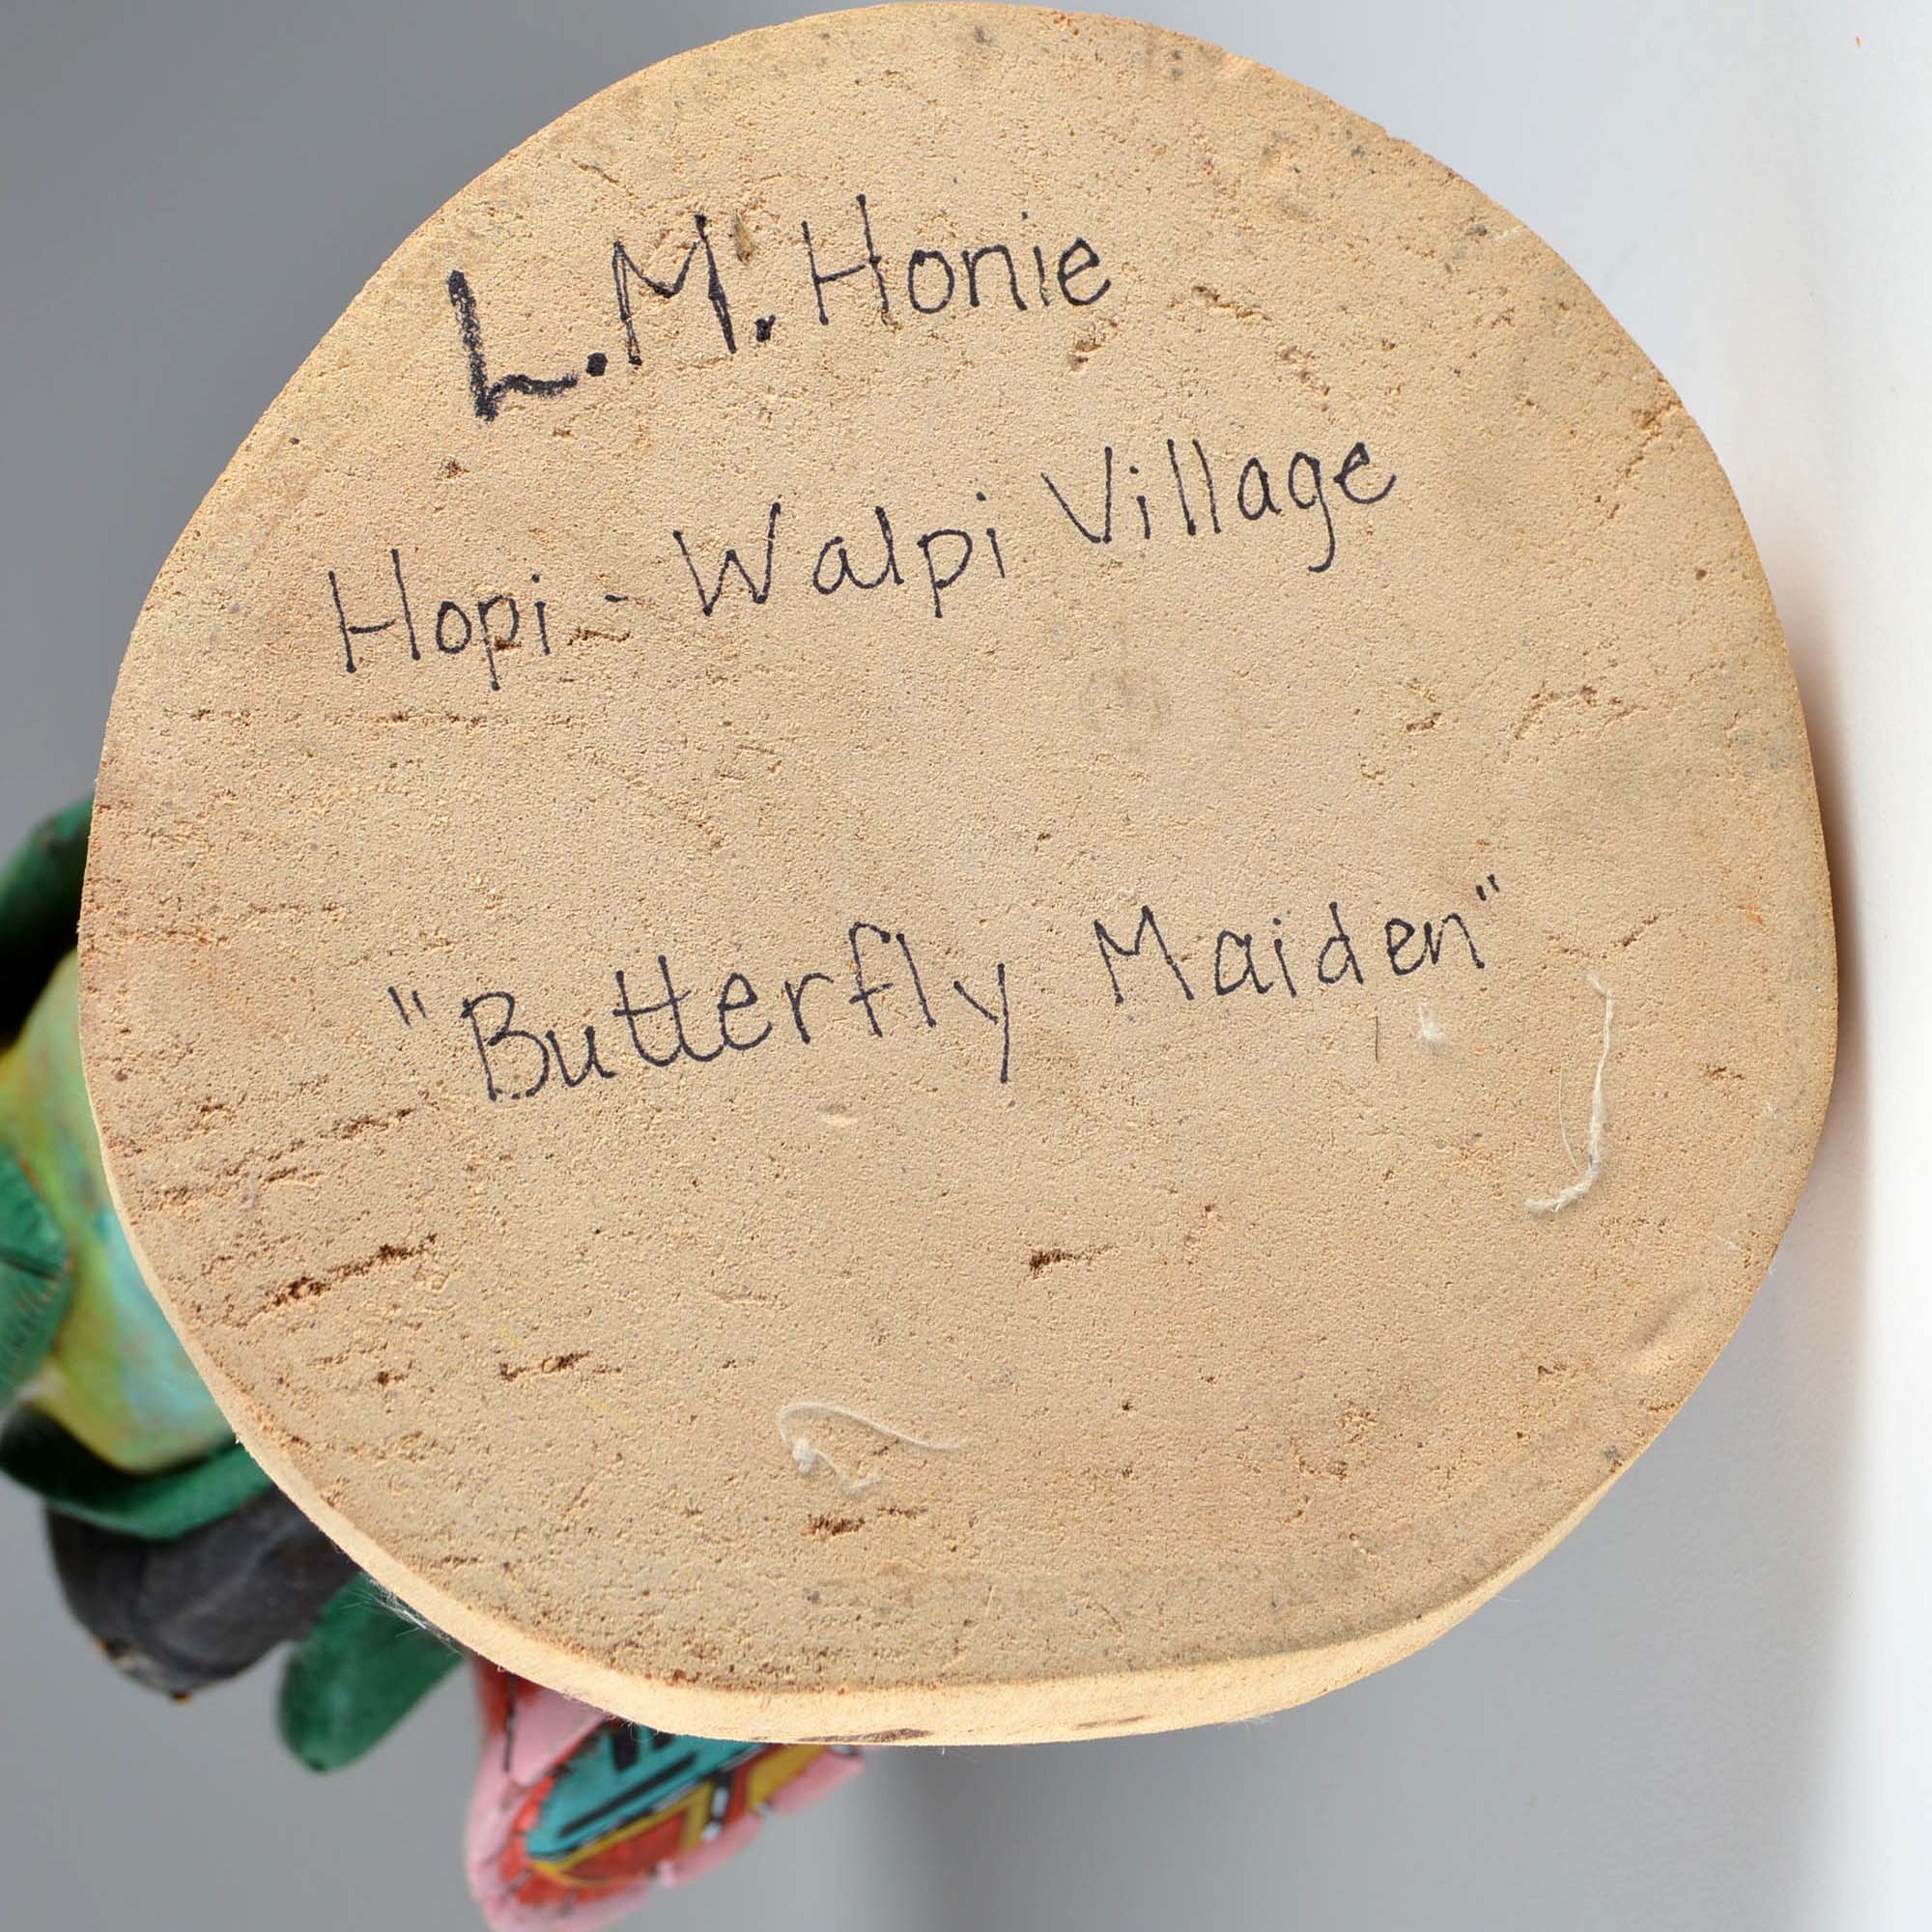 L.M. Honie
Hopi - Walpi Village
"Butterfly Maiden"